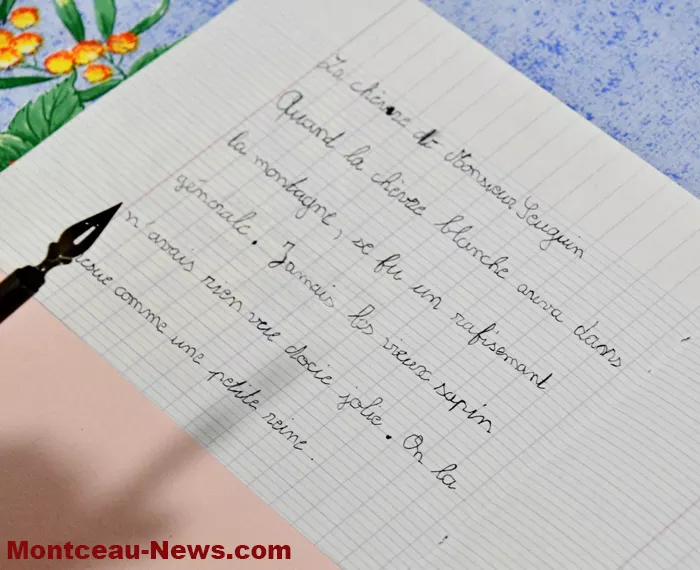 La chèvre de Monsieur Seuguin
Quand la chèvre blanche ariva dans
la montagne, se fu un rafisemant
general. Jamais les vieux sapin
n'avais rien vue docie jolie. On la
resue comme une petite reine.
Montceau-News.com